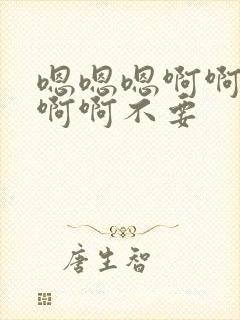 嗯嗯嗯啊啊
啊啊不要
唐生智